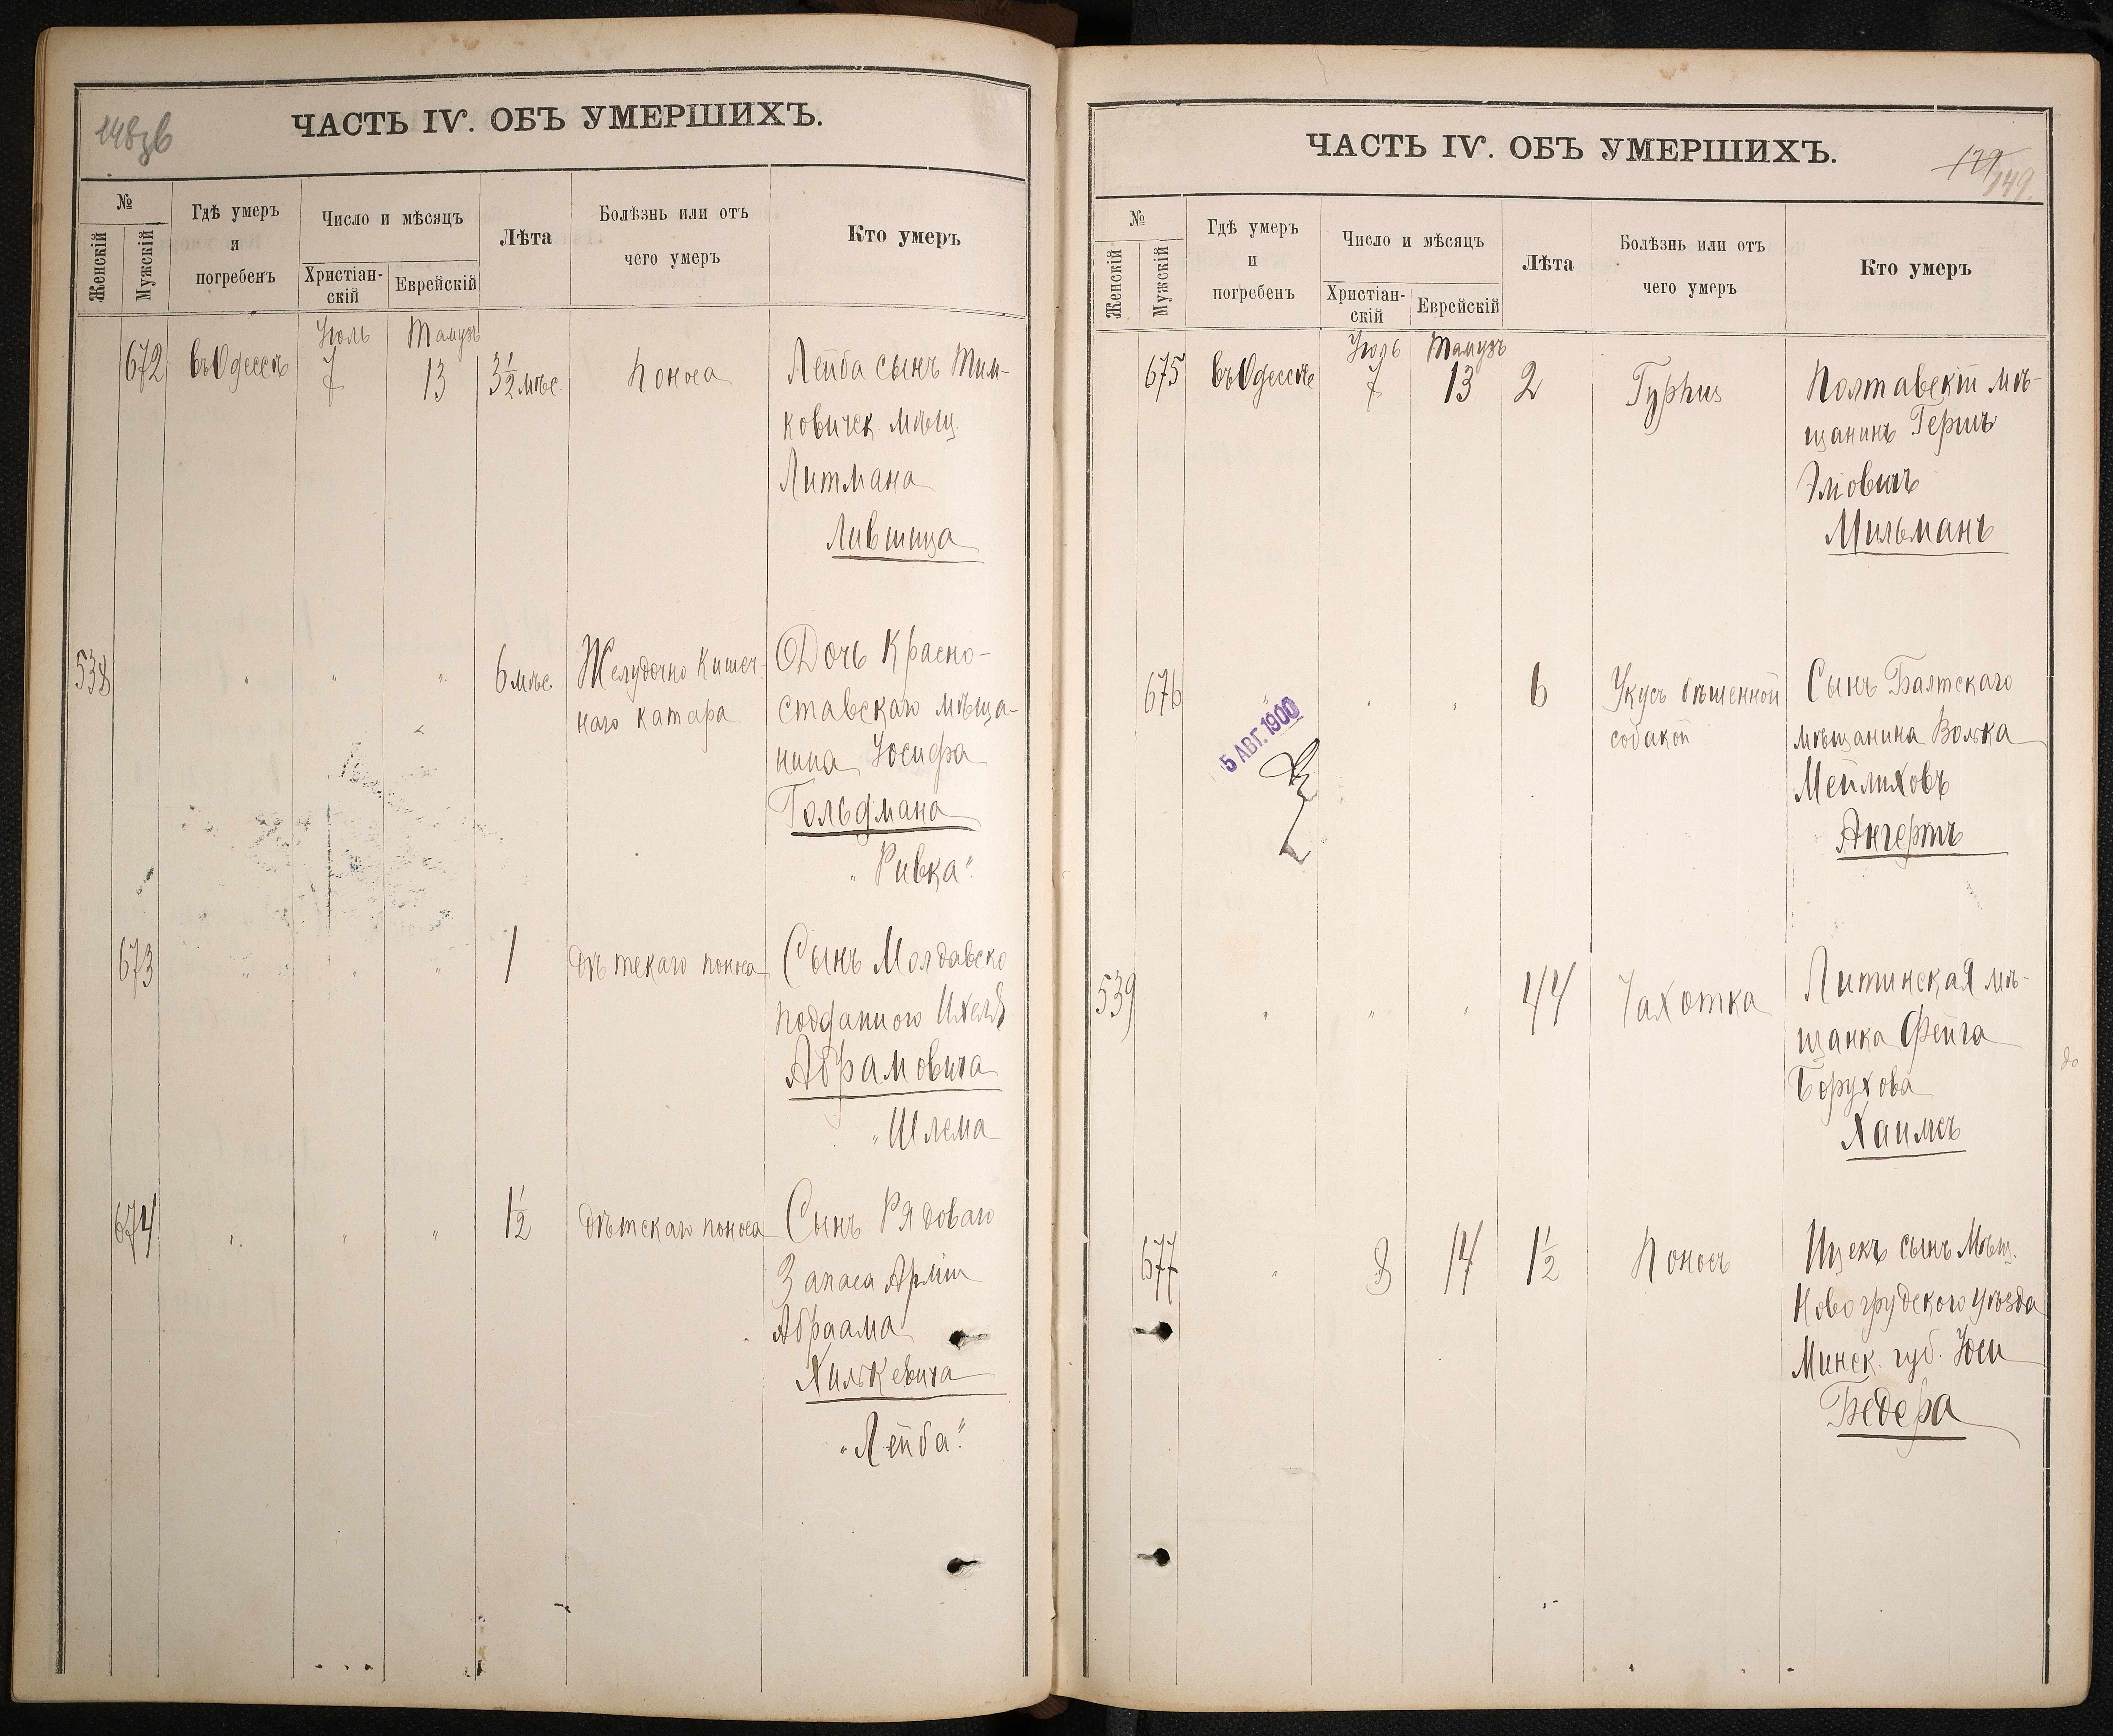 148 об
ЧАСТЬ IV. ОБЪ УМЕРШИХЪ.
№
Женскій
Мужскій
Гдѣ умеръ
и
погребенъ
Число и мѣсяцъ
Христіан-
скій
Еврейскій
Лѣта
Болѣзнь или отъ
чего умеръ
Кто умеръ
Іюль Тамузъ
672 въ Одессѣ 7 13 3½ мѣс. Поноса Лейба сынъ Тим-
ковичск. мѣщ.
Литмана
Лившица
538 " " " 6 мѣс. Желудочно кишеч- Дочь Красно-
наго катара ставскаго мѣща-
нина Іосифа
Гольдмана
"Ривка"
673 " " " 1 Дѣтскаго поноса Сынъ Молдавско
подданного Ихеля
Абрамовича
"Шлема
674 " " " 1½ Дѣтскаго поноса Сынъ Рядоваго
Запаса Арміи
Абраама
Хилькевича
"Лейба"
ЧАСТЬ IV. ОБЪ УМЕРШИХЪ.
129
149.
№
Женскій
Мужскій
Гдѣ умеръ
и
погребенъ
Число и мѣсяцъ
Христіан-
скій
Еврейскій
Лѣта
Болѣзнь или отъ
чего умеръ
Кто умеръ
Іюль Тамузъ
675 въ Одессѣ 7 13 2 Typhus Полтавскій мѣ-
щанинъ Гершъ
Мильманъ
676 " " " 6 Укусъ бѣшенной Сынъ Балтскаго
собакой мѣщанина Волька
Мейлиховъ
Ангертъ
5 АВГ. 1900
539 " " " 44 Чахотка Литинская мѣ-
щанка Фейга
Борухова
Хаимсъ
677 " 8 14 1½ Поносъ Ицекъ сынъ Мѣщ.
Новогрудского уѣзда
Минск. губ. Іоси
Бедера